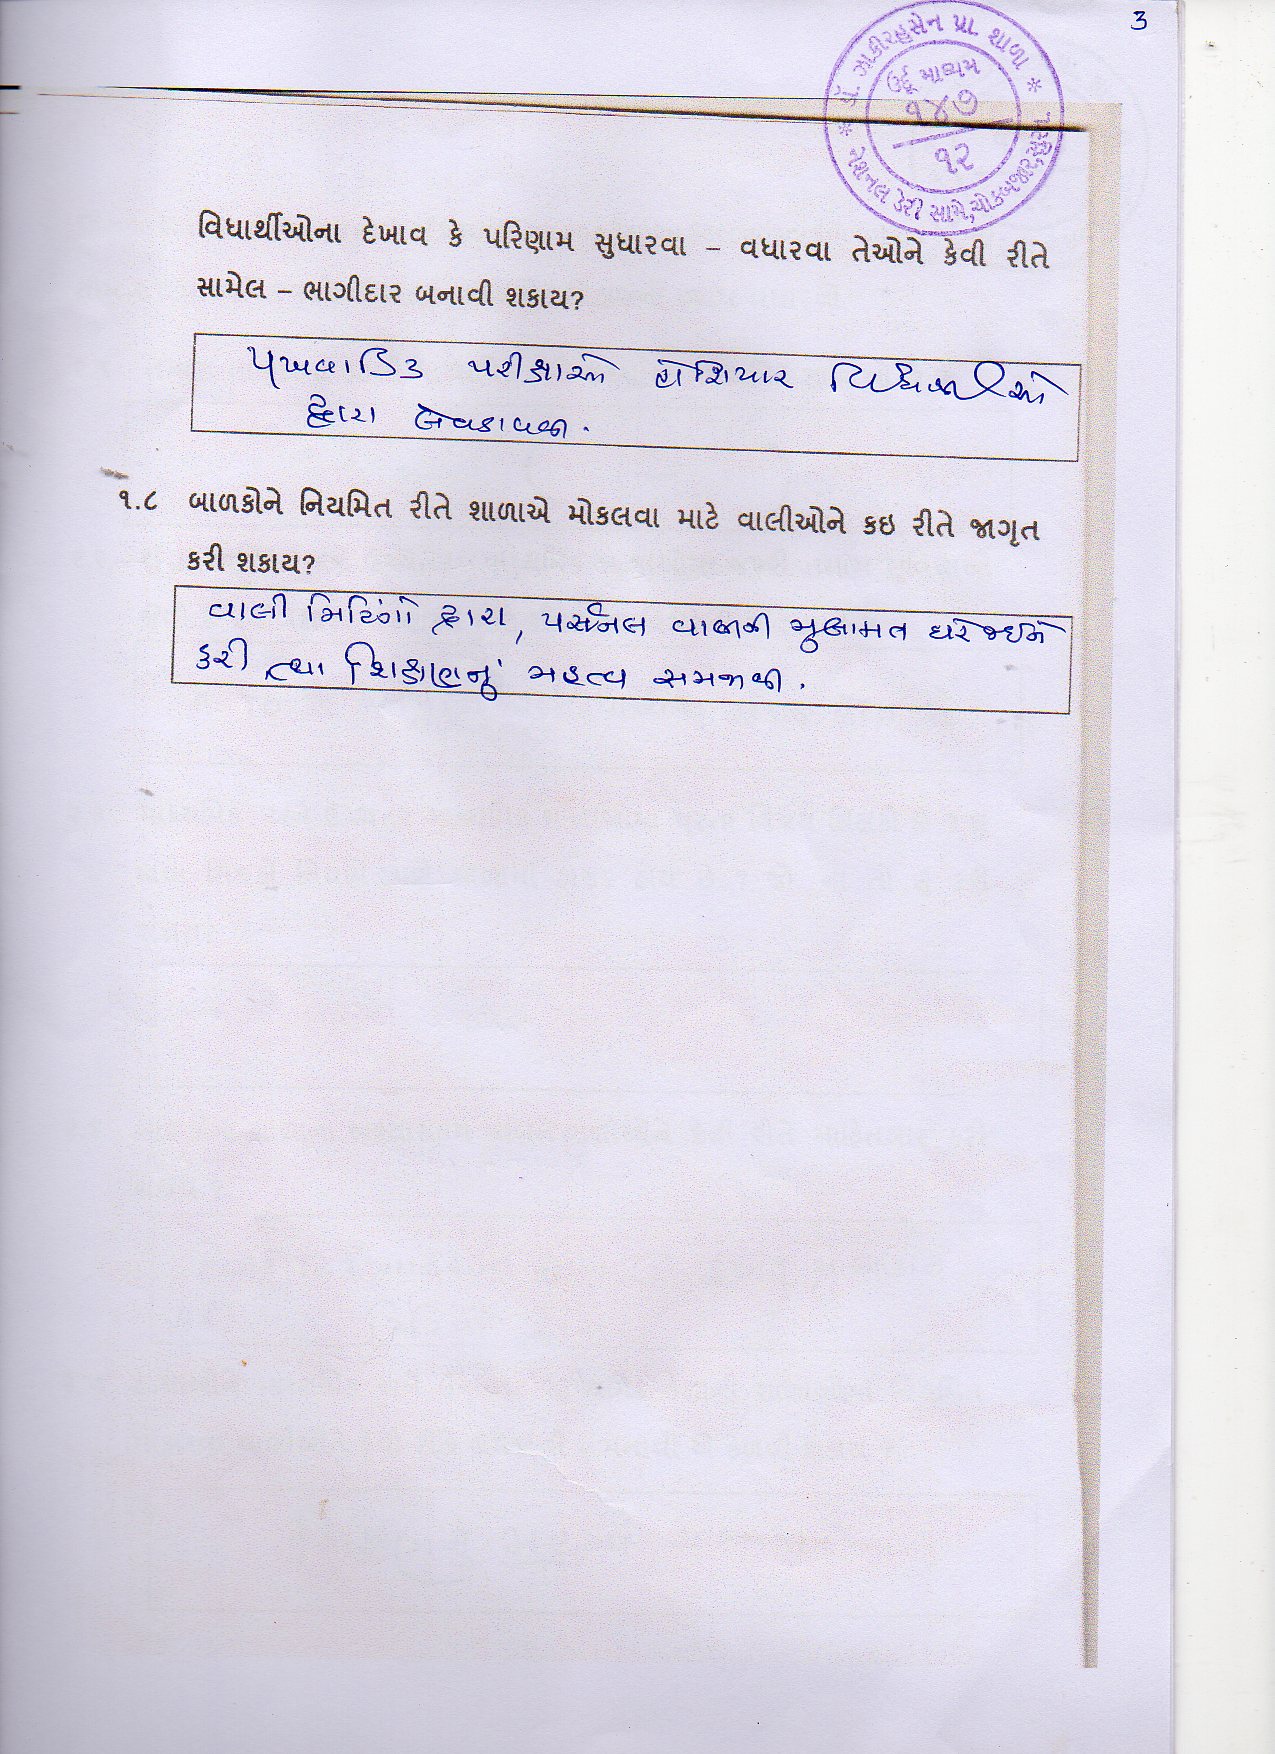 3
ડૉ. ઝાકીરહુસેન પ્રા. શાળા
ઉર્દૂ માધ્યમ
૧૪૭
૧૨
નેશનલ ડેરી સામે, ચોકબજાર, સુરત.
વિધાર્થીઓના દેખાવ કે પરિણામ સુધારવા – વધારવા તેઓને કેવી રીતે
સામેલ – ભાગીદાર બનાવી શકાય?
પખવાડિક પરીક્ષાઓ હોશિયાર વિદ્યાર્થીઓ
દ્વારા લેવડાવવી.
૧.૮ બાળકોને નિયમિત રીતે શાળાએ મોકલવા માટે વાલીઓને કઇ રીતે જાગૃત
કરી શકાય?
વાલી મિટિંગો દ્વારા, પર્સનલ વાલીની મુલાકાત ઘરે જઈને
કરી ત્થા શિક્ષણનું મહત્વ સમજાવી.